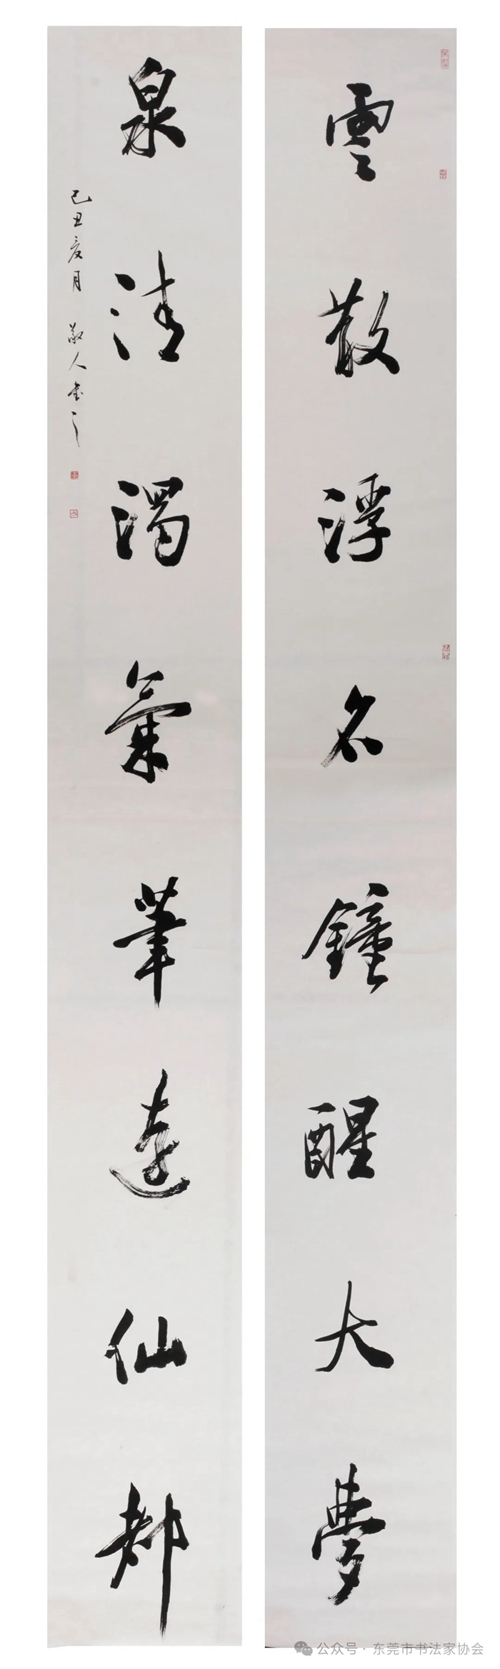 雲散浮名鐘醒大夢
泉清濁氣筆達仙都
己丑夏月 敬人書
公众号·东莞市书法家协会